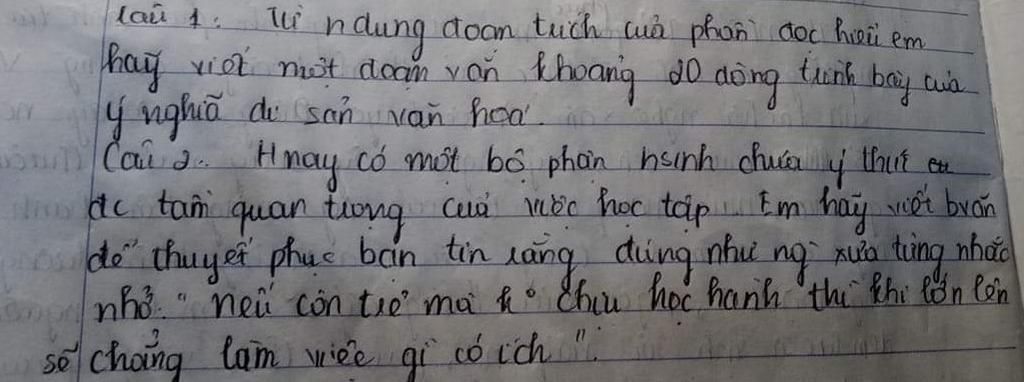 Câu 1: Từ ndung đoạn trích của phần đọc hiểu em
hãy viết một đoạn văn khoảng 20 dòng trình bày của
ý nghĩa di sản văn hoá.
Câu 2. Hnay có một bộ phận hsinh chưa ý thức
đc tầm quan trọng của việc học tập. Em hãy viết bvăn
để thuyết phục bạn tin rằng đúng như ng xưa từng nhắc
nhở. "nếu còn trẻ mà ko chịu học hành thì khi lớn lên
sẽ chẳng làm việc gì có ích".